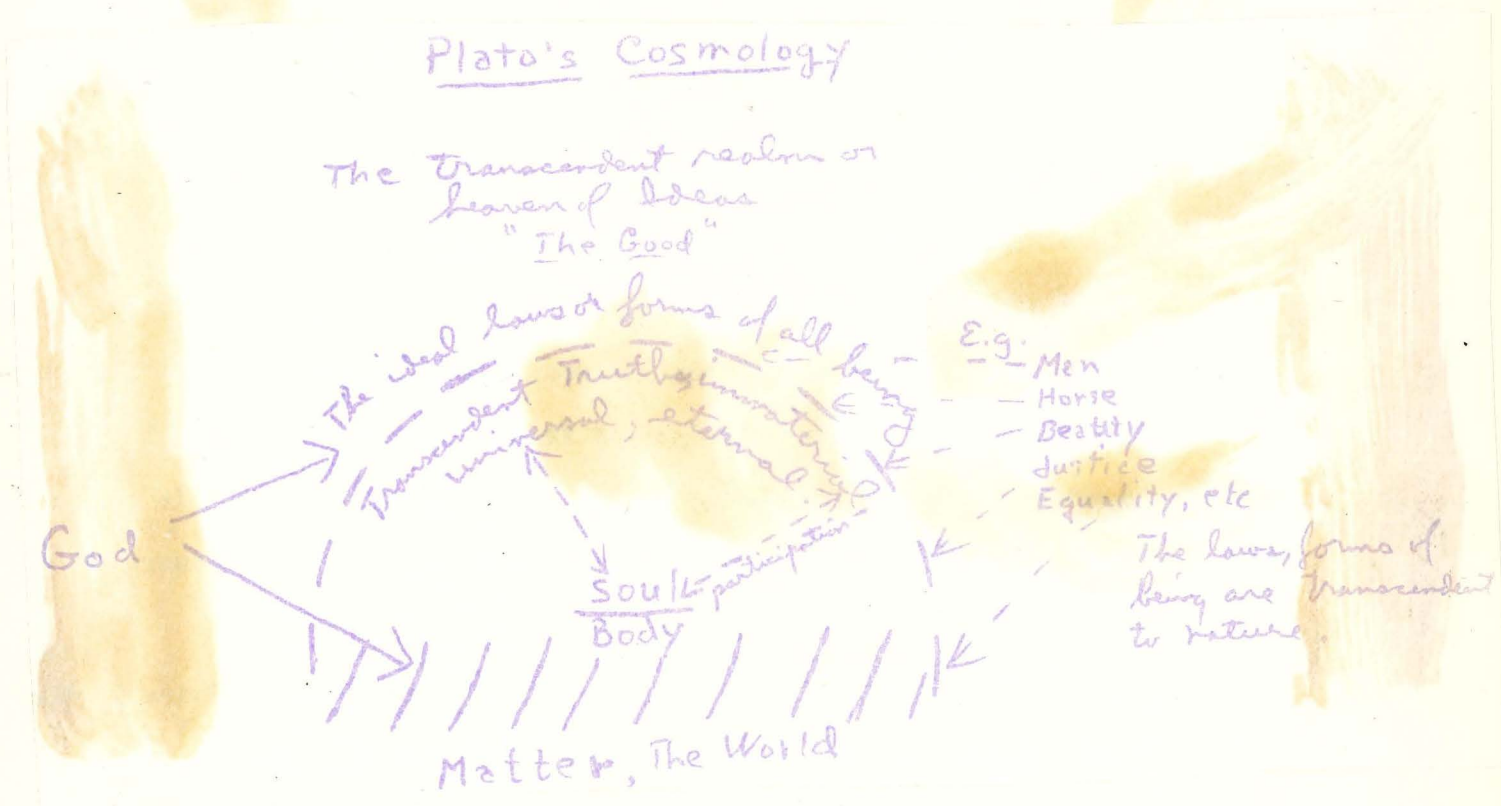 Plato's Cosmology
The transcendent realm or
heaven of Ideas
"The Good"
The ideal laws or forms of all being
Transcendent Truths, immaterial
universal, eternal
E.g.
Men
Horse
Beauty
Justice
Equality, etc
The laws, forms of
being are transcendent
to nature.
God
participation
Soul
Body
Matter, The World